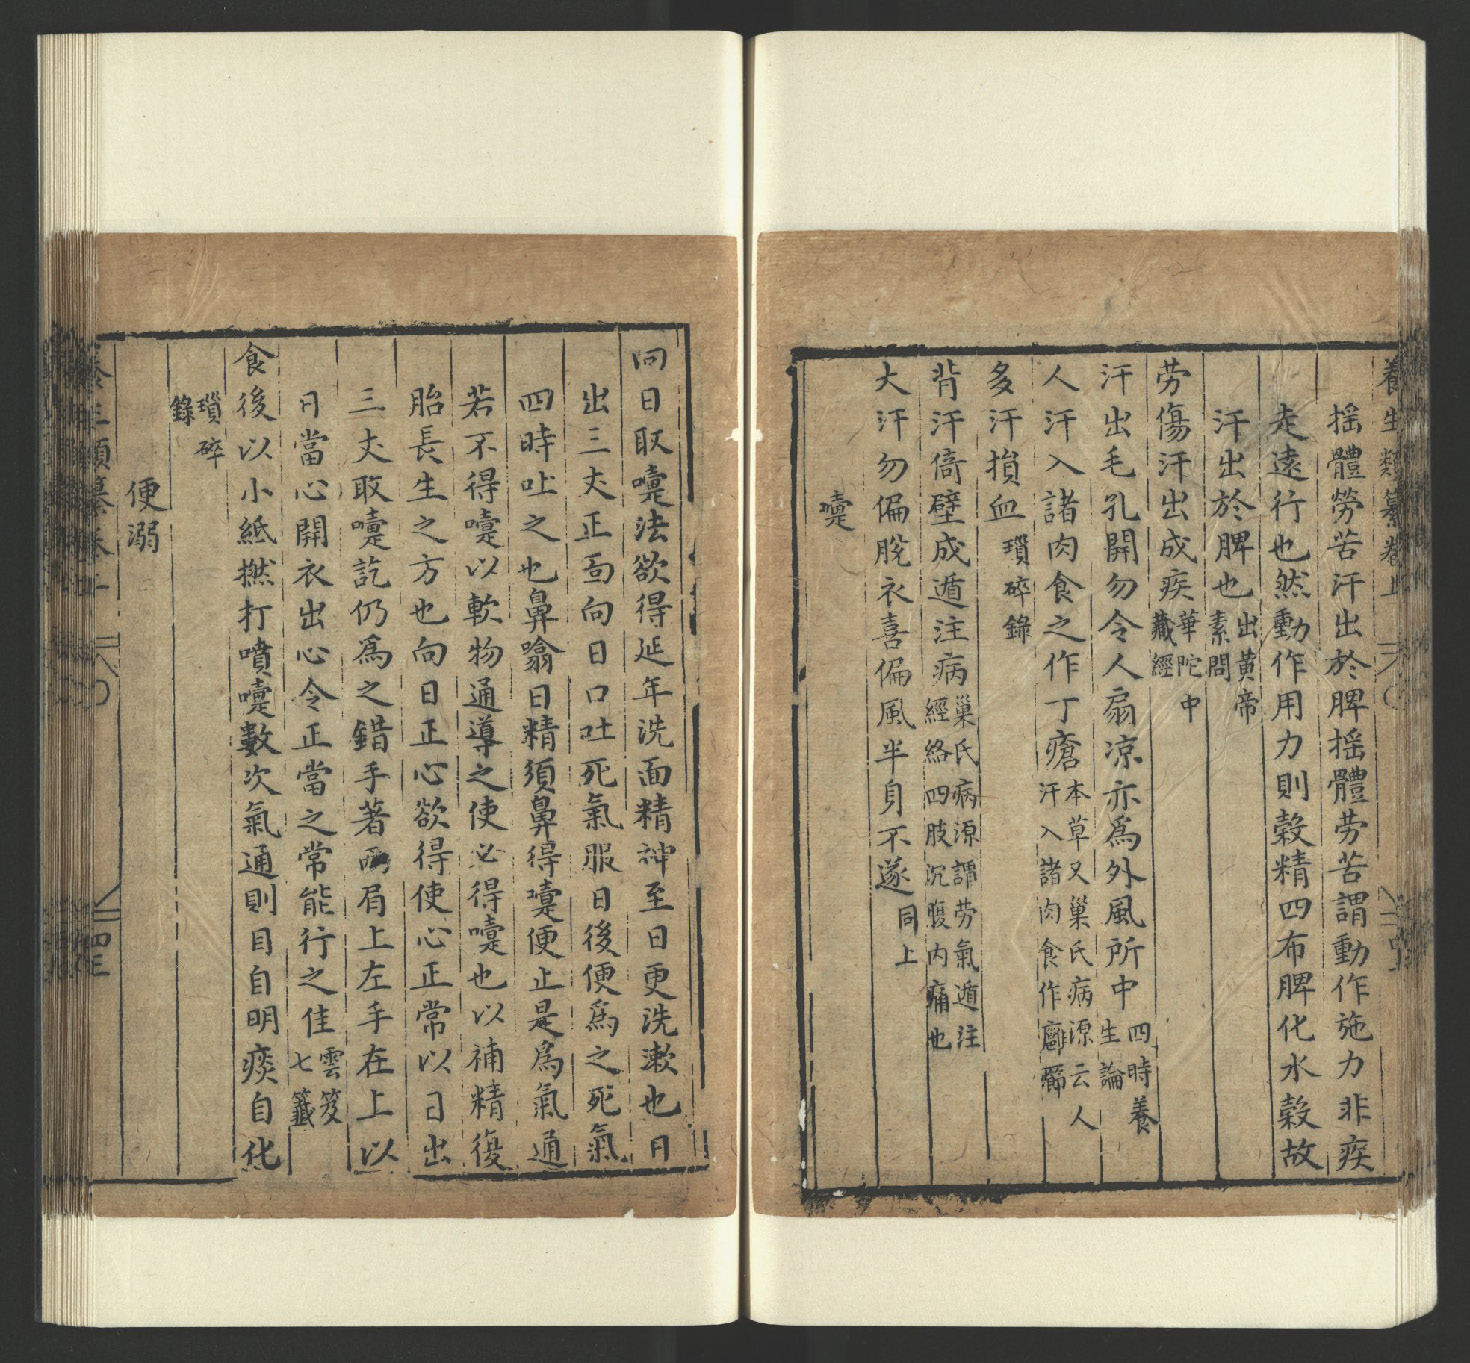 養生類纂卷上
揺體勞苦汗出於脾揺體劳苦謂動作施力非疾
走遠行也然動作用力則榖精四布脾化水榖故
汗出於脾也出黄帝素問
劳傷汗出成疾華陀中藏經
汗出毛孔開勿令人扇凉亦爲外風所中四時養生論
人汗入諸肉食之作丁瘡本草又巢氏病源云人汗入諸肉食作癰癤
多汗損血瑣碎錄
背汗倚壁成遁注病巢氏病源謂劳氣遁注經絡四肢沉腹内痛也
大汗勿偏脫衣喜偏風半身不遂同上
嚏
向日取嚏法欲得延年洗面精神至日更洗漱也日
出三丈正面向日口吐死氣服日後便爲之死氣
四時吐之也鼻噏日精須鼻得嚏便止是爲氣通
若不得嚏以軟物通導之使必得嚏也以補精復
胎長生之方也向日正心欲得使心正常以日出
三丈取嚏訖仍爲之錯手著兩肩上左手在上以
日當心開衣出心令正當之常能行之佳雲笈七籤
食後以小紙撚打噴嚏數次氣通則目自明痰自化
瑣碎錄
便溺